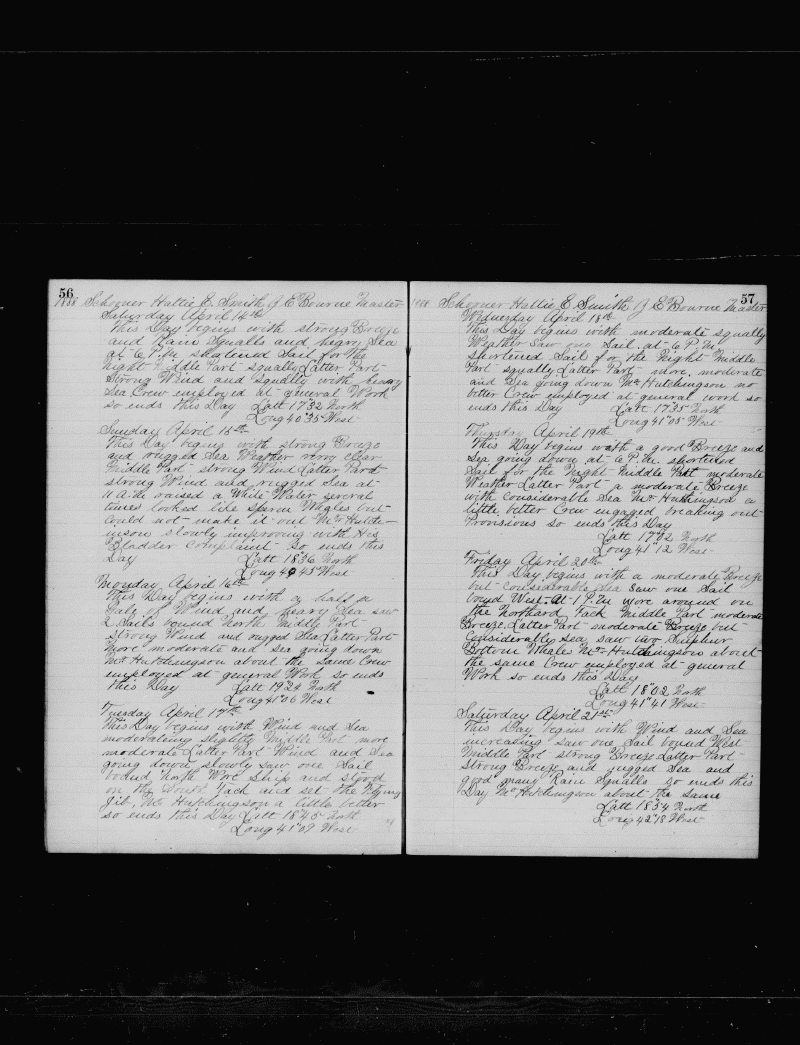 56
1888 Schooner Hattie E. Smith J E Bourne Master
Saturday April 14th
This Day begins with strong Breeze
and Rain Squalls and heavy Sea
at 6 P.M. shortened Sail for the
Night Middle Part squally Latter Part
Strong Wind and squally with heavy
Sea Crew employed at general Work
so ends this Day Latt 17"32 North
Long 40"35 West
Sunday April 15th
This Day begins with strong Breeze
and rugged Sea Weather very clear
Middle Part strong Wind Latter Part
strong Wind and rugged Sea at
11 A.M. raised a White Water several
times looked like Sperm Whales but
could not make it out Mr Hutch-
inson slowly improving with His
Bladder Complaint So ends this
Day Latt 18"36 North
Long 40"45 West
Monday April 16th
This Day begins with a half a
Gale of Wind and heavy Sea saw
2 Sails bound North Middle Part
Strong Wind and rugged Sea Latter Part
More moderate and Sea going down
Mr Hutchingson about the same Crew
employed at general Work so ends
this Day Latt 19"24 North
Long 41"06 West
Tuesday April 17th
This Day begins with Wind and Sea
moderating slightly Middle Part more
moderate Latter Part Wind and Sea
going down slowly saw one Sail
bound North Wore Ship and stood
on the South Tack and set the Flying
Jib, Mr Hutchingson a little better
so ends this Day Latt 18"45 North
Long 41"09 West
57
1888 Schooner Hattie E. Smith J E Bourne Master
Wednesday April 18th
This Day begins with moderate squally
Weather Saw one Sail at 6 P.M.
shortened Sail for the Night Middle
Part squally Latter Part more moderate
and Sea going down Mr Hutchingson no
better Crew employed at general work so
ends this Day Latt 17"35 North
Long 41"05 West
Thursday April 19th
This Day begins with a good Breeze and
Sea going down at 6 P.M. shortened
Sail for the Night Middle Part moderate
Weather Latter Part a moderate Breeze
with considerable Sea Mr Hutchingson a
little better Crew engaged breaking out
Provisions so ends this Day
Latt 17"02 North
Long 41"12 West
Friday April 20th
This Day begins with a moderate Breeze
but considerable Sea Saw one Sail
bound West at 1 P.M. wore around on
the Northard Tack Middle Part moderate
Breeze Latter Part moderate Breeze but
Considerably Sea saw two Sulphur
Bottom Whales Mr Hutchingson about
the same Crew employed at general
Work so ends this Day
Latt 18"02 North
Long 41"41 West
Saturday April 21st
This Day begins with Wind and Sea
increasing saw one Sail bound West
Middle Part strong Breeze Latter Part
Strong Breeze and rugged Sea and
good many Rain Squalls so ends this
Day Mr Hutchingson about the same
Latt 18"54 North
Long 42"18 West